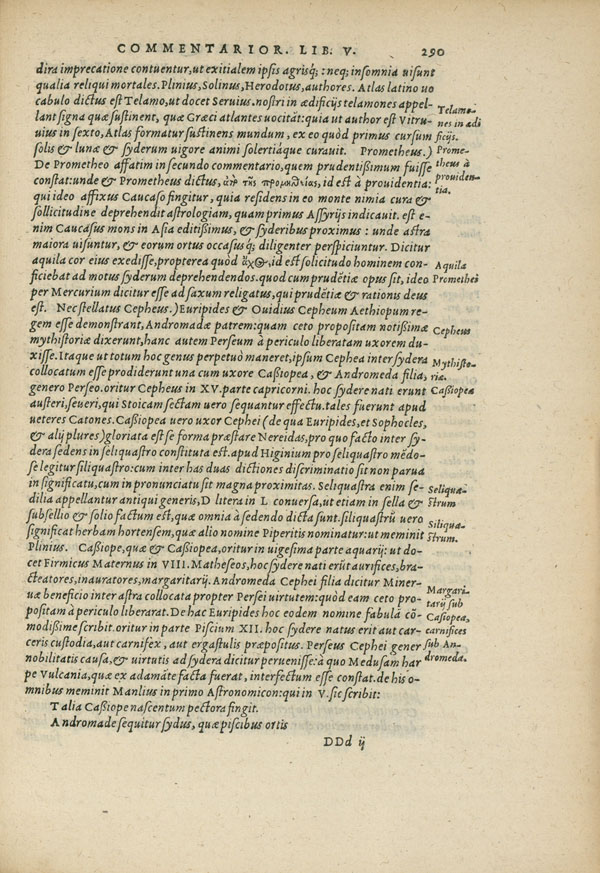 COMMENTARIOR. LIB. V. 290
dira imprecatione contuentur, ut exitialem ipsis agrisq́; : neq; insomnia uisunt
qualia reliqui mortales. Plinius, Solinus, Herodotus, authores. Atlas latino uo
cabulo dictus est Telamo, ut docet Seruius. nostri in ædificijs telamones appel-
lant signa quæ sustinent, quæ Græci atlantes uocitāt: quia ut author est Vitru-
uius in sexto, Atlas formatur sustinens mundum, ex eo quòd primus cursum
solis & lunæ & syderum uigore animi solertiáque curauit. Prometheus.)
De Prometheo affatim in secundo commentario, quem prudentißimum fuisse
constat: unde & Prometheus dictus, ἀπὸ τῆς προμηθείας, id est à prouidentia:
qui ideo affixus Caucaso fingitur, quia residens in eo monte nimia cura &
sollicitudine deprehendit astrologiam, quam primus Assyrijs indicauit. est e-
nim Caucasus mons in Asia editißimus, & syderibus proximus : unde astra
maiora uisuntur, & eorum ortus occasusq́; diligenter perspiciuntur. Dicitur
aquila cor eius exedisse, propterea quòd ἄχος, id est solicitudo hominem con-
ficiebat ad motus syderum deprehendendos. quod cum prudētiæ opus sit, ideo
per Mercurium dicitur esse ad saxum religatus, qui prudētiæ & rationis deus
est. Nec stellatus Cepheus.) Euripides & Ouidius Cepheum Aethiopum re-
gem esse demonstrant, Andromadæ patrem: quam ceto propositam notißimæ
mythistoriæ dixerunt, hanc autem Perseum à periculo liberatam uxorem du-
xisse. Itaque ut totum hoc genus perpetuò maneret, ipsum Cephea inter sydera
collocatum esse prodiderunt una cum uxore Caßiopea, & Andromeda filia,
genero Perseo. oritur Cepheus in XV. parte capricorni. hoc sydere nati erunt
austeri, seueri, qui Stoicam sectam uero sequantur effectu. tales fuerunt apud
ueteres Catones. Caßiopea uero uxor Cephei (de qua Euripides, et Sophocles,
& alij plures) gloriata est se forma præstare Nereidas, pro quo facto inter sy-
dera sedens in seliquastro constituta est. apud Higinium pro seliquastro mēdo-
se legitur siliquastro: cum inter has duas dictiones discriminatio sit non parua
in significatu, cum in pronunciatu sit magna proximitas. Seliquastra enim se-
dilia appellantur antiqui generis, D litera in L conuersa, ut etiam in sella &
subsellio & solio factum est, quæ omnia à sedendo dicta sunt. siliquastrū uero
significat herbam hortensem, quæ alio nomine Piperitis nominatur: ut meminit
Plinius. Caßiope, quæ & Caßiopea, oritur in uigesima parte aquarij: ut do-
cet Firmicus Maternus in VIII. Matheseos, hoc sydere nati erūt aurifices, bra-
cteatores, inauratores, margaritarij. Andromeda Cephei filia dicitur Miner-
uæ beneficio inter astra collocata propter Persei uirtutem: quòd eam ceto pro-
positam à periculo liberarat. De hac Euripides hoc eodem nomine fabulā cō-
modißime scribit. oritur in parte Piscium XII. hoc sydere natus erit aut car-
ceris custodia, aut carnifex, aut ergastulis præpositus. Perseus Cephei gener
nobilitatis causa, & uirtutis ad sydera dicitur peruenisse: à quo Medusam har
pe Vulcania, quæ ex adamāte facta fuerat, interfectum esse constat. de his o-
mnibus meminit Manlius in primo Astronomicon: qui in V. sic scribit:
Talia Caßiope nascentum pectora fingit.
Andromade sequitur sydus, quæ piscibus ortis
DDd ij
Telamo-
nes in ædi
ficijs.
Prome-
theus à
prouiden-
tia.
Aquila
Promethei
Cepheus
Mythisto-
riæ.
Caßiopea
Seliqua-
strum
Siliqua-
strum.
Margari-
tarij sub
Casiopea,
carnifices
sub An-
dromeda.